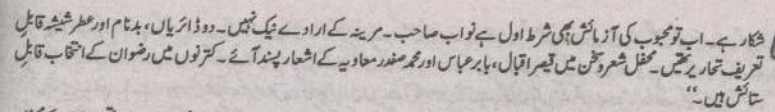 شکار ہے۔ اب تو محبوب کی آزمائش بھی شرط اول ہے نواب صاحب۔ مرینہ کے ارادے نیک نہیں۔ دو ڈائریاں، بدنام اور عطر شیشہ قابل
تعریف تحاریر تھیں۔ محفل شعر و سخن میں قیصر اقبال، بابر عباس اور محمد صفدر معاویہ کے اشعار پسند آئے۔ کترنوں میں رضوان کے انتخاب قابل
ستائش ہیں۔“